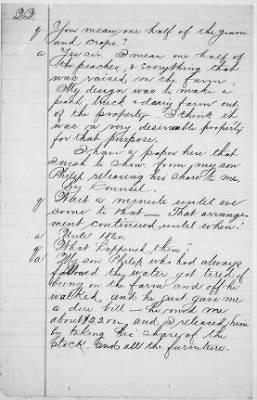 22.
q You mean one half of the grain
and crops?
a Yes sir. I mean one half of
the peaches, & everything that
was raised on the farm.
My design was to make a
peach, truck & dairy farm out
of the property. I think it
was a very desireable property
for that purpose.
I have a paper here that
I wish to show from my son
Philip releasing his share to me.
By Counsel.
q Wait a minute until we
come to that — That arrange-
ment continued until when?
a Until 1880.
q What happened then?
a My son Philip who had always
followed the water got tired of
being on the farm and off he
walked, and he just gave me
a due bill — he owed me
about and I released him
by taking his share of the
stock, and all the furniture.